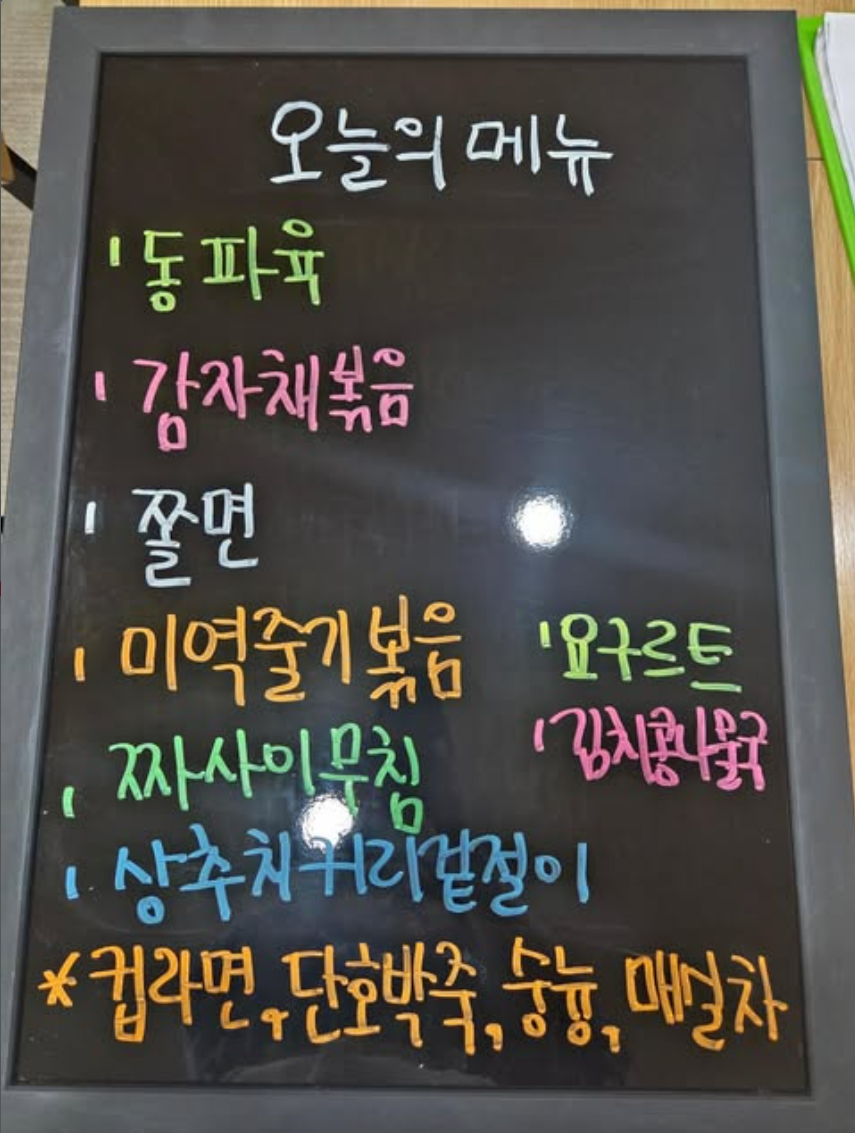 오늘의 메뉴
동파육
감자채볶음
쫄면
미역줄기볶음
요구르트
김치콩나물국
짜사이무침
상추치커리겉절이
*컵라면, 단호박죽, 숭늉, 매실차